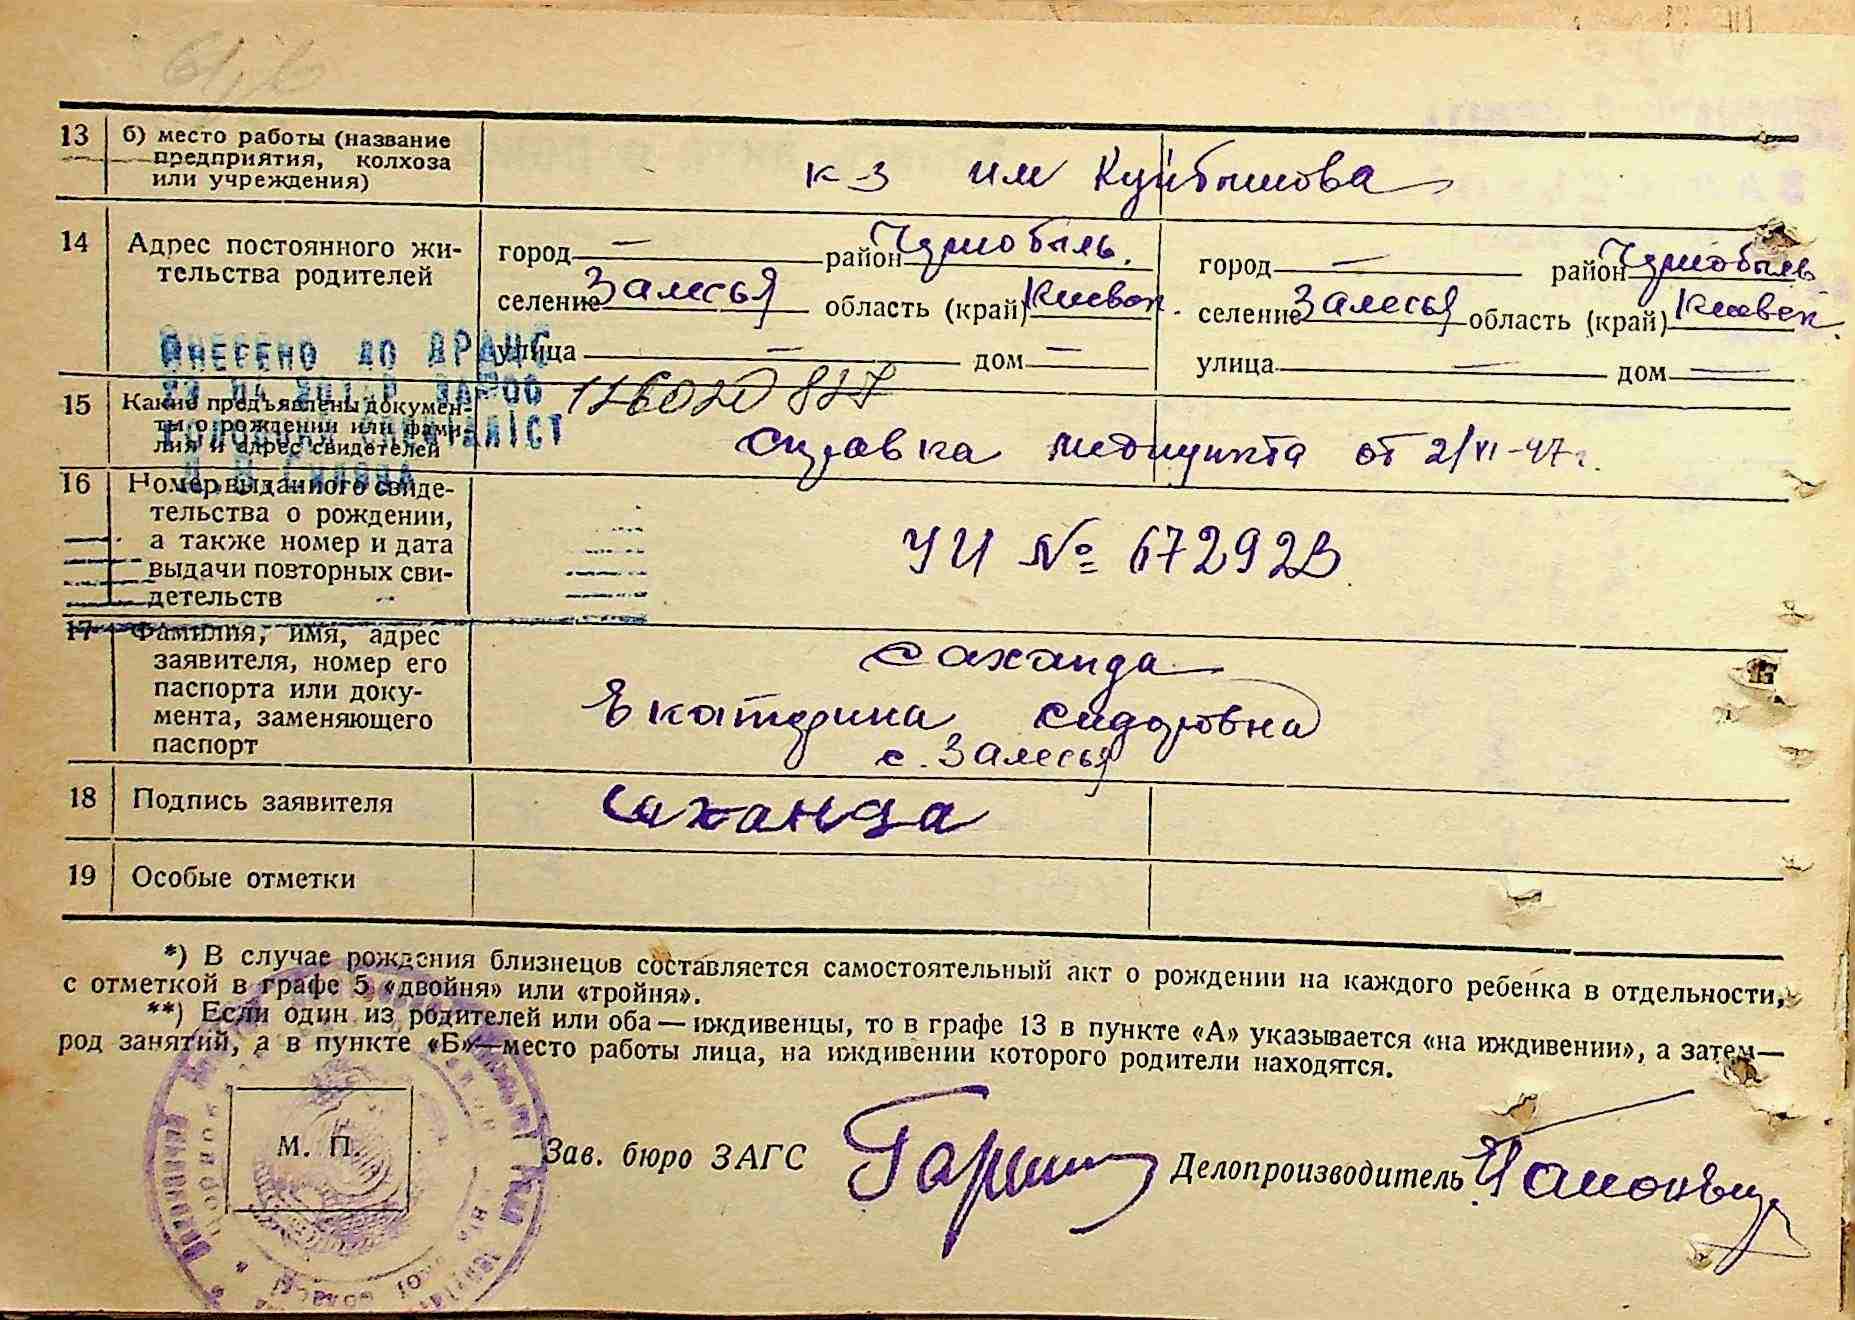 13 б) место работы (название
предприятия, колхоза
или учреждения)
к-з им Куйбышова
14 Адрес постоянного жи-
тельства родителей
город — район Чернобыль. город — район Чернобыль
селение Залесья область (край) Киевск. селение Залесья область (край) Киевск.
улица — дом — улица — дом —
ВНЕСЕНО ДО ДРАЦС
15 Какие предъявлены докумен-
ты о рождении или фами-
лия и адрес свидетелей
справка медпункта от 2/VI-47г.
16 Номер выданного свиде-
тельства о рождении,
а также номер и дата
выдачи повторных сви-
детельств
УИ № 672923
17 Фамилия, имя, адрес
заявителя, номер его
паспорта или доку-
мента, заменяющего
паспорт
Саханда
Екатерина Сидоровна
с. Залесья
18 Подпись заявителя
Саханда
19 Особые отметки
*) В случае рождения близнецов составляется самостоятельный акт о рождении на каждого ребенка в отдельности,
с отметкой в графе 5 «двойня» или «тройня».
**) Если один из родителей или оба — иждивенцы, то в графе 13 в пункте «А» указывается «на иждивении», а затем—
род занятий, а в пункте «Б»—место работы лица, на иждивении которого родители находятся.
М. П.
Зав. бюро ЗАГС Делопроизводитель